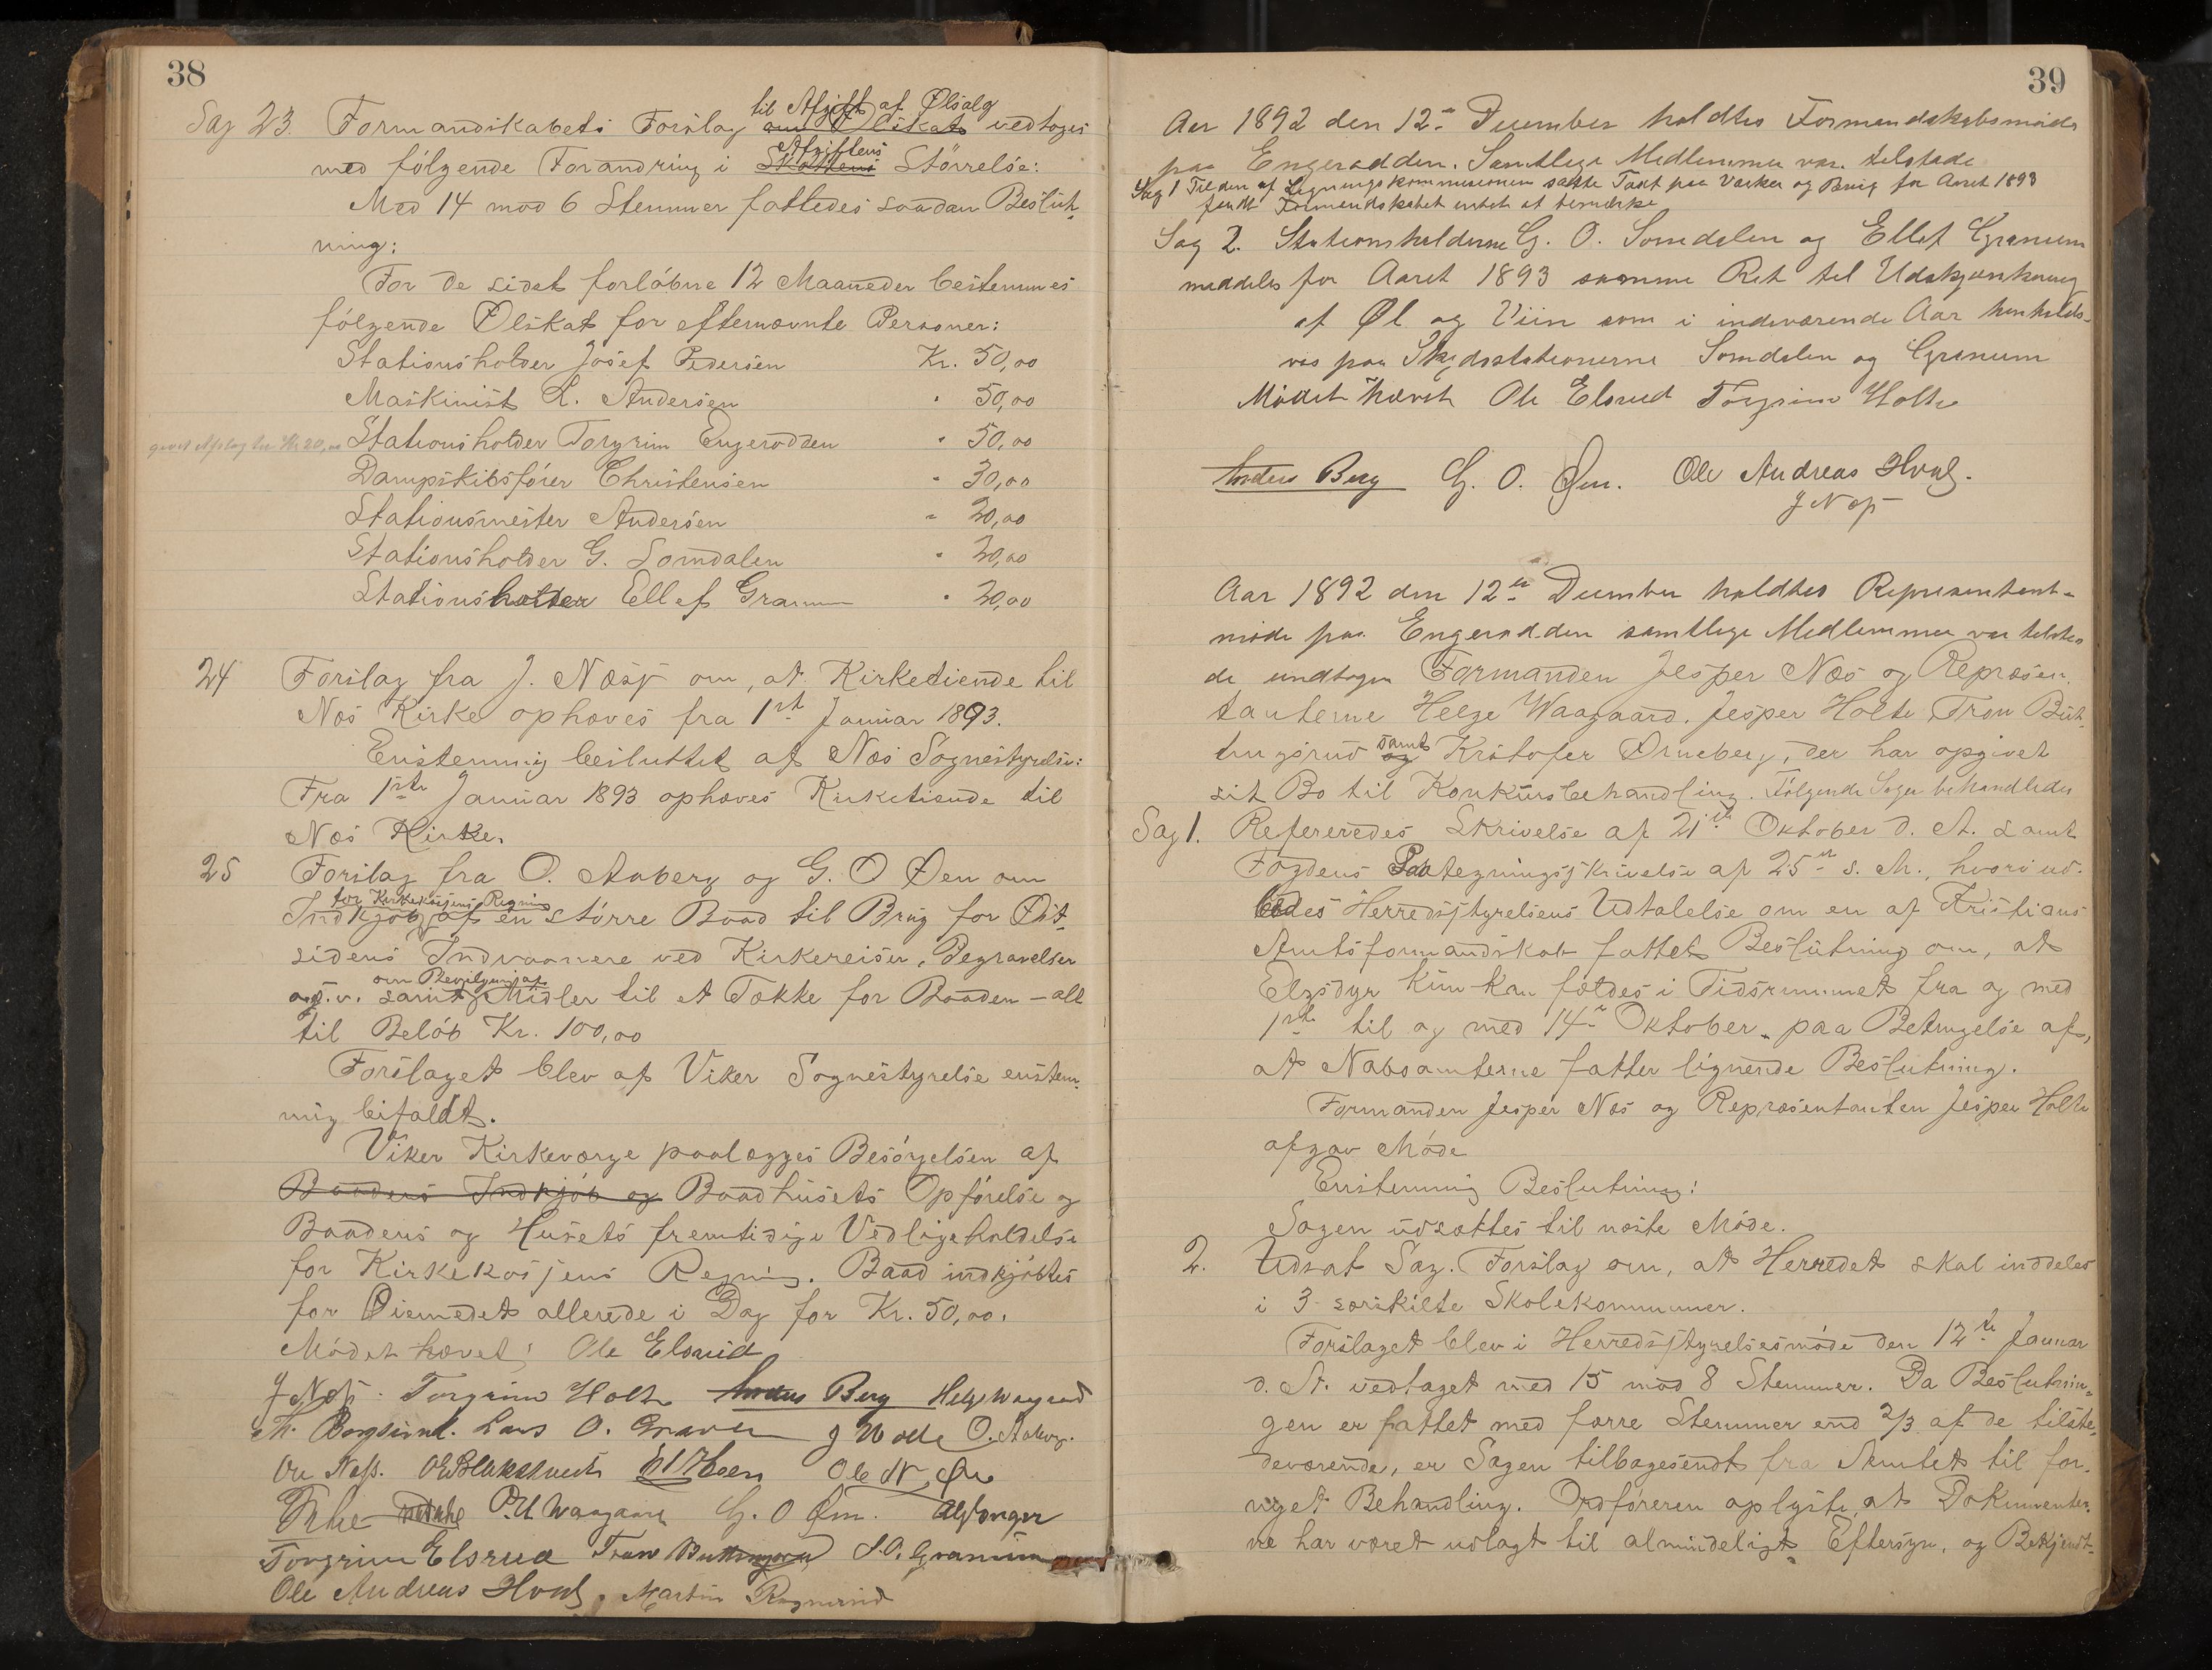 38
til Afgift af Ølsalg
Sag 23. Formandskabets Forslag om Ølskat vedtoges
Afgiftens
med følgende Forandring i Skattens Størrelse:
Med 14 mod 6 Stemmer fattedes saadan Beslut-
ning:
For de sidst forløbne 12 Maaneder bestemmes
følgende Ølskat for efternævnte Personer:
Stationsholder Josef Pedersen Kr. 50,00
Maskinist L. Andersen " 50,00
Stationsholder Torgrim Engerodden " 50,00
Dampskibsfører Christensen " 30,00
Stationsmester Andersen " 20,00
Stationsholder G. Somdalen " 20,00
Stationsholder Ellef Granum " 20,00
24 Forslag fra J. Næss om, at Kirketiende til
Næs Kirke ophæves fra 1ste Januar 1893.
Enstemmig besluttet af Næs Sognestyrelse:
Fra 1ste Januar 1893 ophæves Kirketiende til
Næs Kirke.
25 Forslag fra O. Aaberg og G. O Øen om
for Kirkekassens Regning
Indkjøb af en større Baad til Brug for Øst-
sidens Indvaanere ved Kirkereiser, Begravelser
om Bevilgning af
o.s.v. samt Midler til et Tække for Baaden – alt
til Beløb Kr. 100,00
Forslaget blev af Viker Sognestyrelse enstem-
mig bifaldt.
Viker Kirkeværge paalægges Besørgelsen af
Baadens Indkjøb og Baadhusets Opførelse og
Baadens og Husets fremtidige Vedligeholdelse
for Kirkekassens Regning. Baad indkjøbtes
for Øiemedet allerede i Dag for Kr. 50,00.
Mødet hævet! Ole Elsrud
J Næss. Torgrim Holte Anders Berg Helge Waagaard
Lars O. Graven J Wolle O. Aaberg.
Ole N. Øen
P. H Waagaard G. O Øen.
Torgrim Elsrud Tron Buttingsrud
Ole Andreas Hval. Martin Ragnerud
39
Aar 1892 den 12te December holdtes Formandskabsmøde
paa Engerodden. Samtlige Medlemmer var tilstede
Sag 1 Til den af Ligningskommissionen satte Taxt paa Værker og Brug for Aaret 1893
fandt Formandskabet intet at bemærke
Sag 2. Stationsholderne G. O. Somdalen og Ellef Granum
meddeles for Aaret 1893 samme Ret til Udskjænkning
af Øl og Viin som i indeværende Aar henholds-
vis paa Skydsstationerne Somdalen og Granum
Mødet hævet Ole Elsrud Torgrim Holte
Anders Berg G. O. Øen. Ole Andreas Hval.
J Næss
Aar 1892 den 12te December holdtes Representent-
møde paa Engerodden samtlige Medlemmer var tilste-
de undtagen Formanden Jesper Næs og Repræsen-
tanterne Helge Waagaard, Jesper Holte, Tron But-
samt
tingsrud og Kristofer Ørneberg, der har opgivet
sit Bo til Konkursbehandling. Følgende Sager behandledes
Sag 1. Refereredes Skrivelse af 21de Oktober d. A. samt
Fogdens Paategningsskrivelse af 25de s. M., hvori ud-
bedes Herredsstyrelsens Udtalelse om en af Kristians
Amtsformandskab fattet Beslutning om, at
Elgsdyr kun kan fældes i Tidsrummet fra og med
1ste til og med 14de Oktober, paa Betingelse af,
at Naboamterne fatter lignende Beslutning.
Formanden Jesper Næs og Repræsentanten Jesper Holte
afgav Møde
Enstemmig Beslutning:
Sagen udsættes til næste Møde.
2. Udsat Sag. Forslag om, at Herredet skal inddeles
i 3 særskilte Skolekommuner.
Forslaget blev i Herredsstyrelsesmøde den 12te Januar
d. A. vedtaget med 15 mod 8 Stemmer. Da Beslutnin-
gen er fattet med færre Stemmer end 2/3 af de tilste-
deværende, er Sagen tilbagesendt fra Amtet til for-
nyet Behandling. Ordføreren oplyste, at Dokumenter-
ne har været udlagt til almindeligt Eftersyn, og Bekjendt-